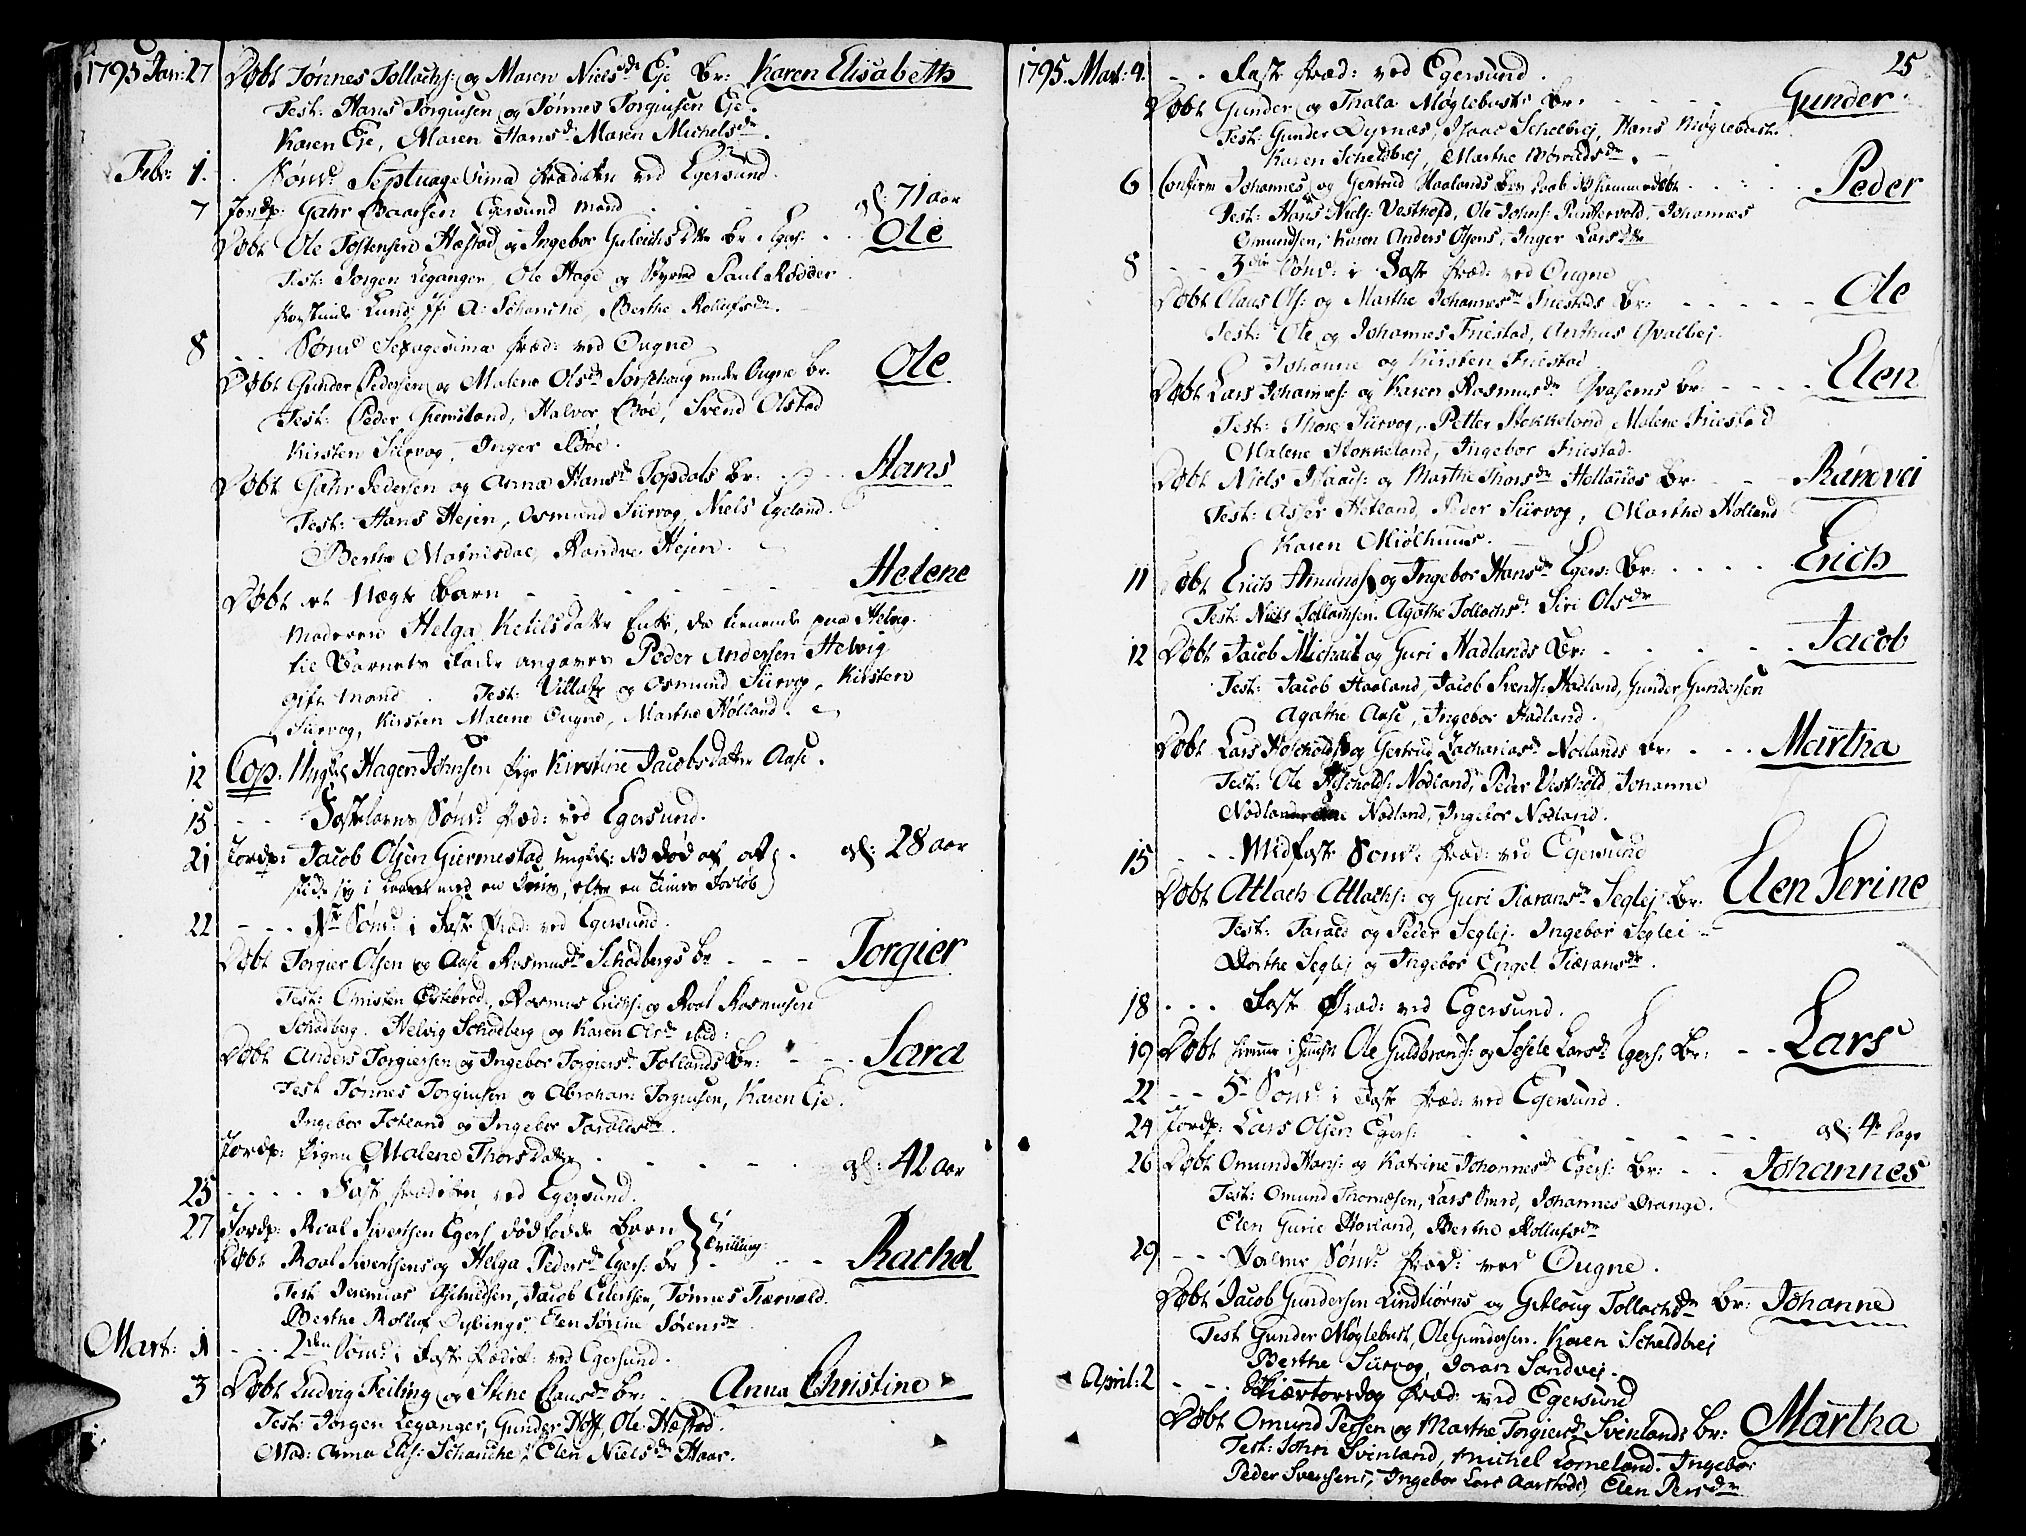 1795 Jan: 27 Døbt Tønnes Tollachs: og Maren Nielsdr Eje Br: Karen Elisabeth
Test: Hans Torgiusen og Tønnes Torgiusen Eje.
Karen Eje, Maren Hansdr Maren Michelsdr.
Febr: 1. Sønd: Septuagesima Prædiken ved Egersund.
7 Jordp: Gahr Egersund Mand gl: 71 aar
Døbt Ole Tostensen Hæstad og Ingebor Dtr Br. Egers: Ole
Test: Jorgen Leganger, Ole Hage og Paul Rödder
Lund, A: Schanche, Berthe Rollufsdr.
8 Sønd: Sexagesima Præd: ved Ougne
Døbt Gunder Pedersen og Malene Olsdr under Ougne Br. Ole
Test: Peder, Halvor Böe, Svend Olstad
Kirsten Siirvog, Inger Böe.
Døbt Gahr Pedersen og Anna Hansdr Topdals Br: Hans
Test: Hans Hejen, Osmund Siirvog, Niels Egeland.
Berthe, Randve Hejen.
Døbt et Uægte Barn Helene
Moderen Helga Ketilsdatter Enke, da tienende paa Helvig.
til Barnets Fader angaves Peder Andersen Helvig
gift Mand. Test: og Osmund Siirvog, Kirsten
Siirvog, Kirsten Malene Ougne, Marthe Holland.
12 Cop: Ungkl Hagen Johnsen Pige Kirstine Jacobsdatter Aase.
15 Fastelavns Sønd: Præd: ved Egersund.
21 Jordp: Jacob Olsen Giermestad Ungkl: NB død af at gl: 28 aar
sig i med en, efter en Times Forløb
22 1ste Sønd: i Faste Præd: ved Egersund.
Døbt Torgier Olsen og Aase Rasmusdr Schadbergs Br Torgier
Test: Christen, Rasmus Erichs: og Roal Rasmusen
Schadberg. Helvig Schadberg og Karen Olsdr ibid:
Døbt Anders Torgiersen og Ingebor Torgiersdr Totlands Br: Sara
Test Tønnes Torgiusen og Abraham Torgiusen, Karen Eje.
Ingebor Totland og Ingebor Taraldsdr.
Jordp: Pigen Malene Thorsdatter gl: 42 aar
25 Faste Prædiken ved Egersund.
27 Jordp: Roal Sivertsen Egers dødfødde Barn
Døbt Roal Sivertsens og Helga Pedersdr Egers: Br Tvilling: Rachel
Test Jeremias, Jacob Eilertsen, Tønnes Tiærvald.
Berthe Rolluf, Elen Sørine Sørensdr
Mart: 1 2den Sønd: i Faste Prædik: ved Egersund.
3 Døbt Ludvig Feiling og Stine Clausdr Br: Anna Christine
Test: Jörgen Leganger, Gunder Hoff, Ole Hæstad.
Mad: Anna Elis: Schanche, Elen Nielsdr Haar.
25
1795. Mart: 4. Faste Præd: ved Egersund.
Døbt Gunder og Thala Møglebusts Br: Gunder
Test: Gunder Dyrnæs, Isaac Scheldbrej, Hans Møglebust.
Karen Scheldbrej, Marthe.
6 Confirm Johannes og Gertrud Haalands Barn Daab NB hiemmedøbt Peder
Test: Hans Niels: Vesthold, Ole Johns:, Johannes
Omundsen, Karen Anders Olsens, Inger Larsdtr
8 3die Sønd: i Faste Præd: ved Ougne
Døbt Claus Ols: og Marthe Johannesdr Friestads Br: Ole
Test: Ole og Johannes Friestad, Qvalbej.
Johanne og Kirsten Friestad
Døbt Lars Johannes: og Karen Rasmusdr Br: Elen
Test: Siirvog, Petter Stokkeland Malene Friestad
Malene Stokkeland, Ingebor Friestad.
Døbt Niels Isaach: og Marthe Thorsdr Hollands Br: Randvei
Test: Asser Hetland, Peder Siirvog, Marthe Holland
Karen Miølhuus.
11 Døbt Erich Amunds og Ingebor Hansdr Egers: Br: Erich
Test: Niels Tollachsen. Agathe Tollachsdr Siri Olsdr
12 Døbt Jacob Michael og Guri Hadlands Br: Jacob
Test: Jacob Haaland, Jacob Svends: Hadland, Gunder Gundersen
Agathe Aase, Ingebor Hadland.
Døbt Lars og Gertrud Zachariasdr Nodlands Br: Martha
Test: Ole Nodland, Peder Vesthold, Johanne
Nodland, Ingebor Nodland.
15 Midfaste Sønd: Præd: ved Egersund
Døbt Atlach Atlachs: og Guri Tiøransdr Seglej Br: Elen Serine
Test: Tarald og Peder Seglej. Ingebor Seglei
Dorthe Seglej og Ingebor Engel Tiøransdr.
18 Faste Præd: ved Egersund.
19 Døbt hiemme Ole Guldbrands: og Larsdr Egers: Br: Lars
22 5 Sønd: i Faste Præd: ved Egersund.
24 Jordp: Lars Olsen Egers: gl: 4 Dage
26 Døbt Omund Hans: og Katrine Johannesdr Egers: Br: Johannes
Test: Omund Thomæsen, Lars, Johannes Drange.
Elen Gurie Hovland, Berthe Rollufsdr
29 Palme Sønd: Præd: ved Ougne.
Døbt Jacob Gundersen Lindtiørns og Tollachsdr Br: Johanne
Test Gunder Møglebust, Ole Gundersen. Karen Scheldbrej
Berthe Siirvog, Joran Sandvej.
April: 2 Skiærtorsdag Præd: ved Egersund
Døbt Omund Persen og Marthe Torgiersdr Svinlands Br: Martha
Test: John Svinland, Michel Lomeland. Ingebor
Peder Svensens, Ingebor Lars Aarstads, Elen Persdr